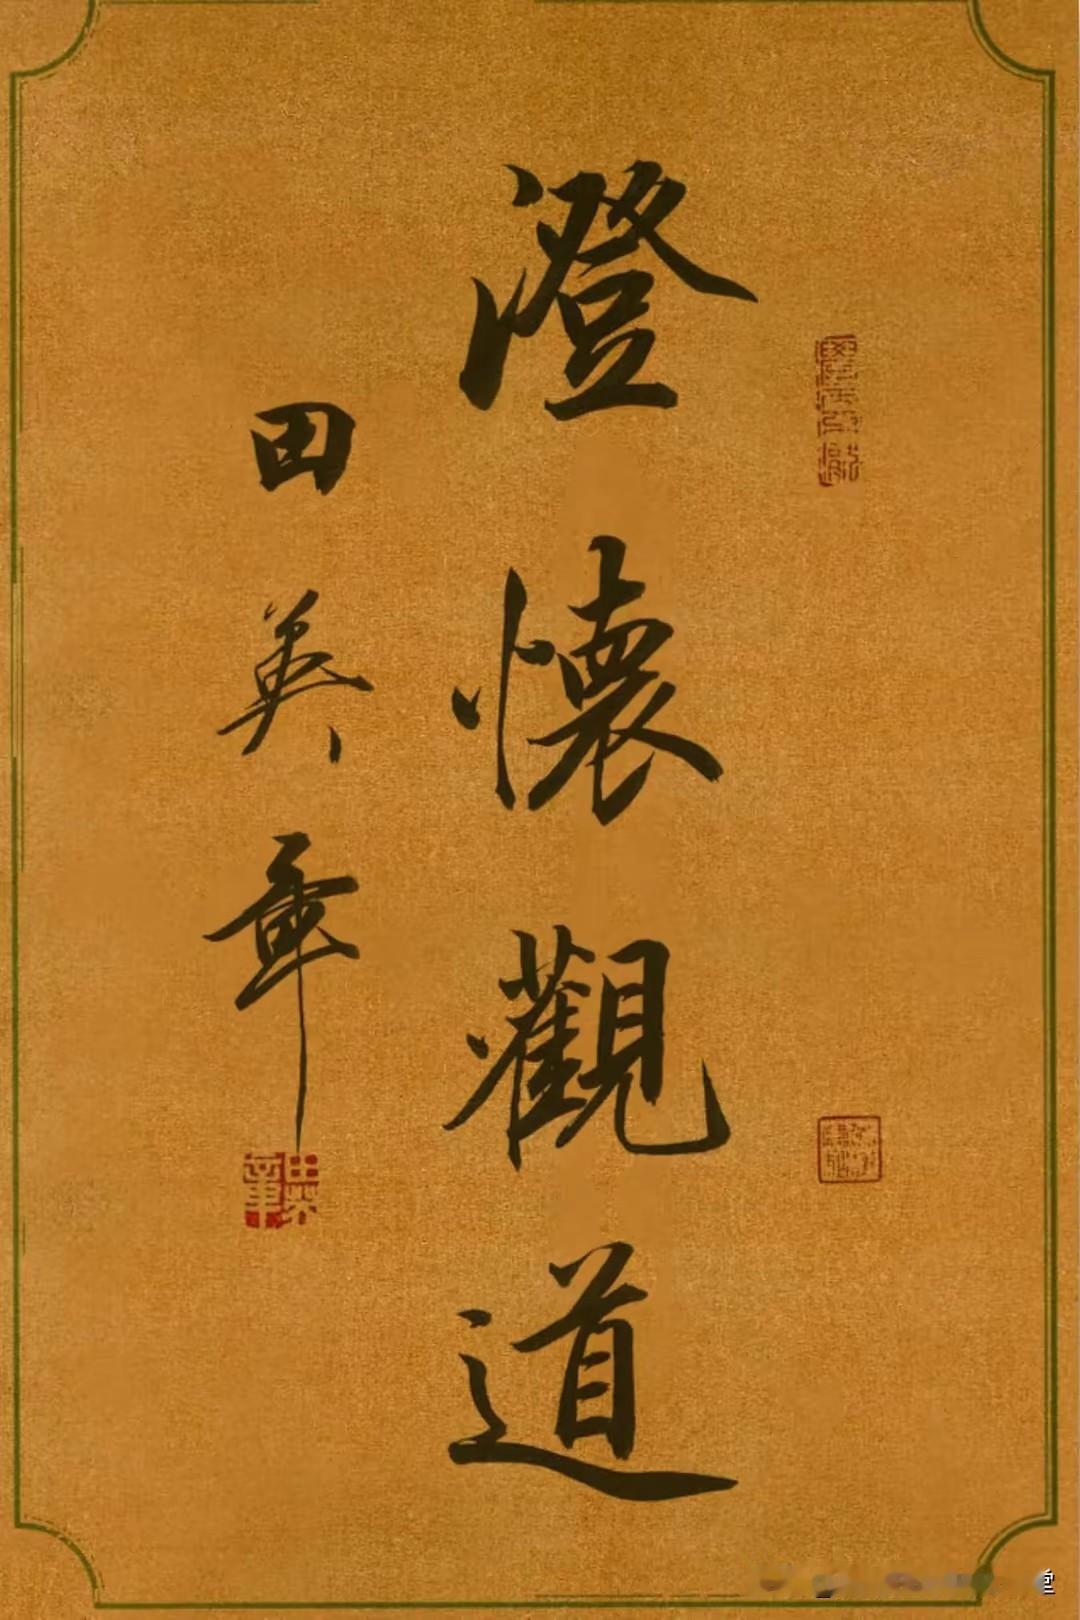 澄懷觀道
田英章
田英章